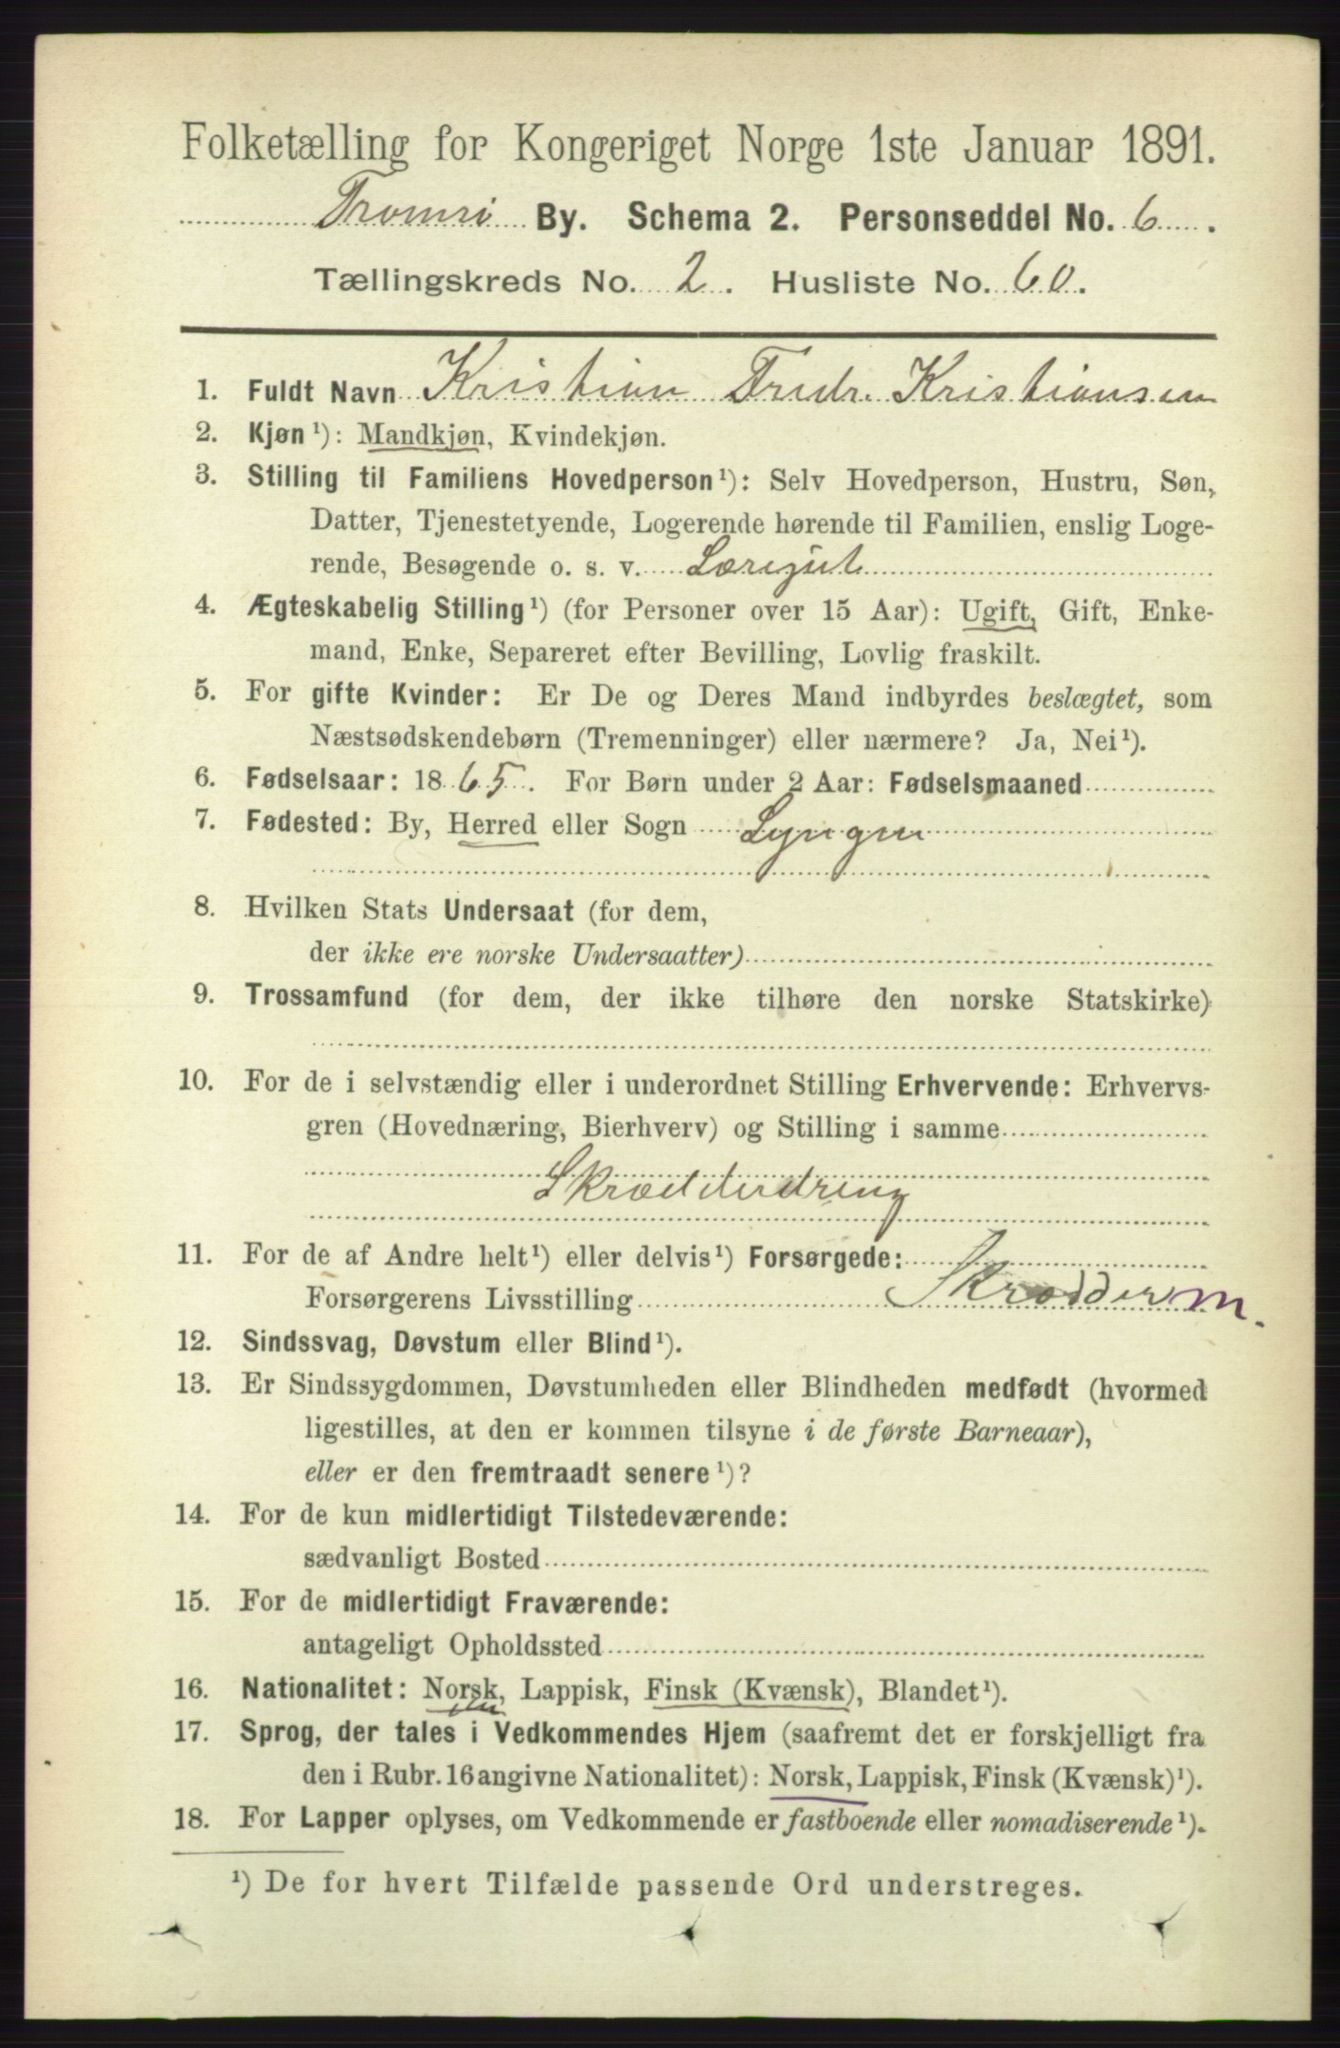 Folketælling for Kongeriget Norge 1ste Januar 1891.
Tromsö By. Schema 2. Personseddel No. 6.
Tællingskreds No. 2. Husliste No. 60.
1. Fuldt Navn Kristian Fredr. Kristiansen
2. Kjøn¹): Mandkjøn, Kvindekjøn.
3. Stilling til Familiens Hovedperson¹): Selv Hovedperson, Hustru, Søn,
Datter, Tjenestetyende, Logerende hørende til Familien, enslig Loge-
rende, Besøgende o. s. v. Læregut
4. Ægteskabelig Stilling¹) (for Personer over 15 Aar): Ugift, Gift, Enke-
mand, Enke, Separeret efter Bevilling, Lovlig fraskilt.
5. For gifte Kvinder: Er De og Deres Mand indbyrdes beslægtet, som
Næstsødskendebørn (Tremenninger) eller nærmere? Ja, Nei¹).
6. Fødselsaar: 1865. For Børn under 2 Aar: Fødselsmaaned
7. Fødested: By, Herred eller Sogn Lyngen
8. Hvilken Stats Undersaat (for dem,
der ikke ere norske Undersaatter)
9. Trossamfund (for dem, der ikke tilhøre den norske Statskirke)
10. For de i selvstændig eller i underordnet Stilling Erhvervende: Erhvervs-
gren (Hovednæring, Bierhverv) og Stilling i samme
Skrædderdreng
11. For de af Andre helt¹) eller delvis¹) Forsørgede:
Forsørgerens Livsstilling Skrædderm.
12. Sindssvag, Døvstum eller Blind¹).
13. Er Sindssygdommen, Døvstumheden eller Blindheden medfødt (hvormed
ligestilles, at den er kommen tilsyne i de første Barneaar),
eller er den fremtraadt senere¹)?
14. For de kun midlertidigt Tilstedeværende:
sædvanligt Bosted
15. For de midlertidigt Fraværende:
antageligt Opholdssted
16. Nationalitet: Norsk, Lappisk, Finsk (Kvænsk), Blandet¹).
17. Sprog, der tales i Vedkommendes Hjem (saafremt det er forskjelligt fra
den i Rubr. 16 angivne Nationalitet): Norsk, Lappisk, Finsk (Kvænsk)¹).
18. For Lapper oplyses, om Vedkommende er fastboende eller nomadiserende¹).
¹) De for hvert Tilfælde passende Ord understreges.